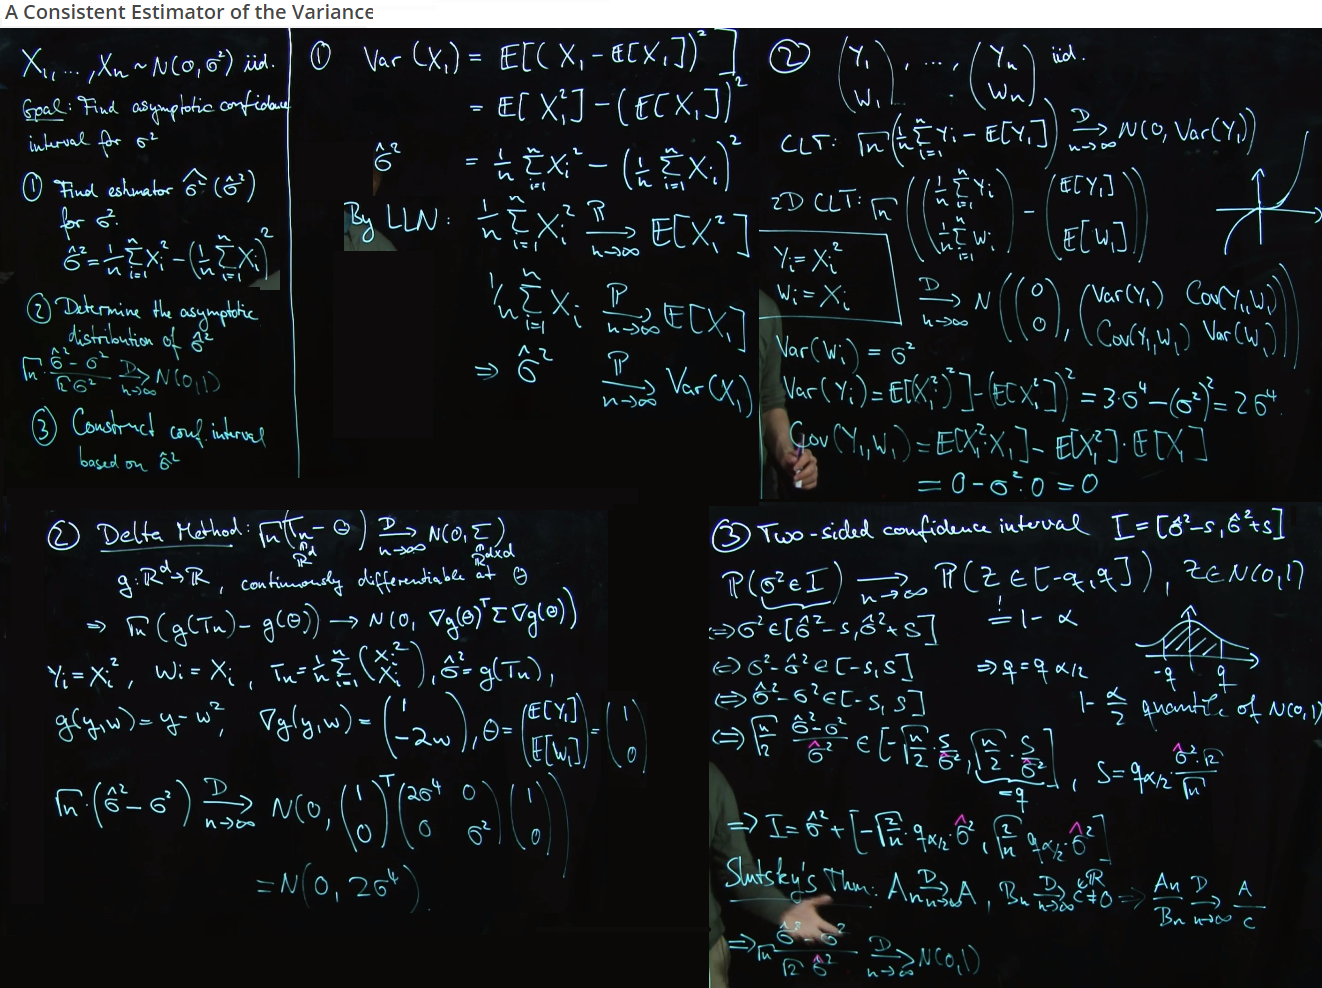 A Consistent Estimator of the Variance
X₁, ..., Xn ~ N(0, σ²) iid.
Goal: Find asymptotic confidence
interval for σ²
① Find estimator σ̂² (σ̂²)
for σ².
σ̂² = 1/n Σ_{i=1}^n Xi² - (1/n Σ_{i=1}^n Xi)²
② Determine the asymptotic
distribution of σ̂²
√n · (σ̂² - σ²)/(√2 σ²) →D n→∞ N(0,1)
③ Construct conf. interval
based on σ̂²
① Var(X₁) = E[(X₁ - E[X₁])²]
= E[X₁²] - (E[X₁])²
σ̂² = 1/n Σ_{i=1}^n Xi² - (1/n Σ_{i=1}^n Xi)²
By LLN: 1/n Σ_{i=1}^n Xi² →P n→∞ E[X₁²]
1/n Σ_{i=1}^n Xi →P n→∞ E[X₁]
⇒ σ̂² →P n→∞ Var(X₁)
② (Y₁ W₁), ..., (Yn Wn) iid.
CLT: √n (1/n Σ_{i=1}^n Yi - E[Y₁]) →D n→∞ N(0, Var(Y₁))
2D CLT: √n ((1/n Σ_{i=1}^n Yi, 1/n Σ_{i=1}^n Wi) - (E[Y₁], E[W₁]))
Yi = Xi²
Wi = Xi
→D n→∞ N((0 0), (Var(Y₁) Cov(Y₁,W₁) Cov(Y₁,W₁) Var(W₁)))
Var(Wi) = σ²
Var(Yi) = E[(X₁²)²] - (E[X₁²])² = 3·σ⁴ - (σ²)² = 2σ⁴.
Cov(Y₁,W₁) = E[X₁²·X₁] - E[X₁²]·E[X₁]
= 0 - σ²·0 = 0
② Delta Method: √n (Tn - Θ) →D n→∞ N(0, Σ)
ℝd ℝdxd
g: ℝd → ℝ, continuously differentiable at Θ
⇒ √n (g(Tn) - g(Θ)) → N(0, ∇g(Θ)ᵀ Σ ∇g(Θ))
Yi = Xi², Wi = Xi, Tn = 1/n Σ_{i=1}^n (Xi² Xi), σ̂² = g(Tn),
g(y,w) = y - w², ∇g(y,w) = (1 -2w), Θ = (E[Y₁] E[W₁]) = (1 0)
√n · (σ̂² - σ²) →D n→∞ N(0, (1 0)ᵀ (2σ⁴ 0 0 σ²) (1 0))
= N(0, 2σ⁴).
③ Two-sided confidence interval I = [σ̂²-s, σ̂²+s]
P(σ² ∈ I) → n→∞ P(Z ∈ [-q, q]), Z ∈ N(0,1)
! = 1 - α
⇔ σ² ∈ [σ̂² - s, σ̂² + s]
⇔ σ² - σ̂² ∈ [-s, s] ⇒ q = q α/2
-q q
⇔ σ̂² - σ² ∈ [-s, s]
1 - α/2 quantile of N(0,1)
⇔ √(n/2) (σ̂² - σ²)/σ̂² ∈ [-√(n/2) · s/σ̂², √(n/2) · s/σ̂²], s = q α/2 · σ̂²·√2/√n
= q
⇒ I = σ̂² + [-√(2/n) · q α/2 · σ̂², √(2/n) q α/2 · σ̂²]
Slutsky's Thm: An →D n→∞ A, Bn →D n→∞ c ∈ ℝ ≠ 0 ⇒ An/Bn →D n→∞ A/c
⇒ √n (σ̂² - σ²)/(√2 σ̂²) →D n→∞ N(0,1)